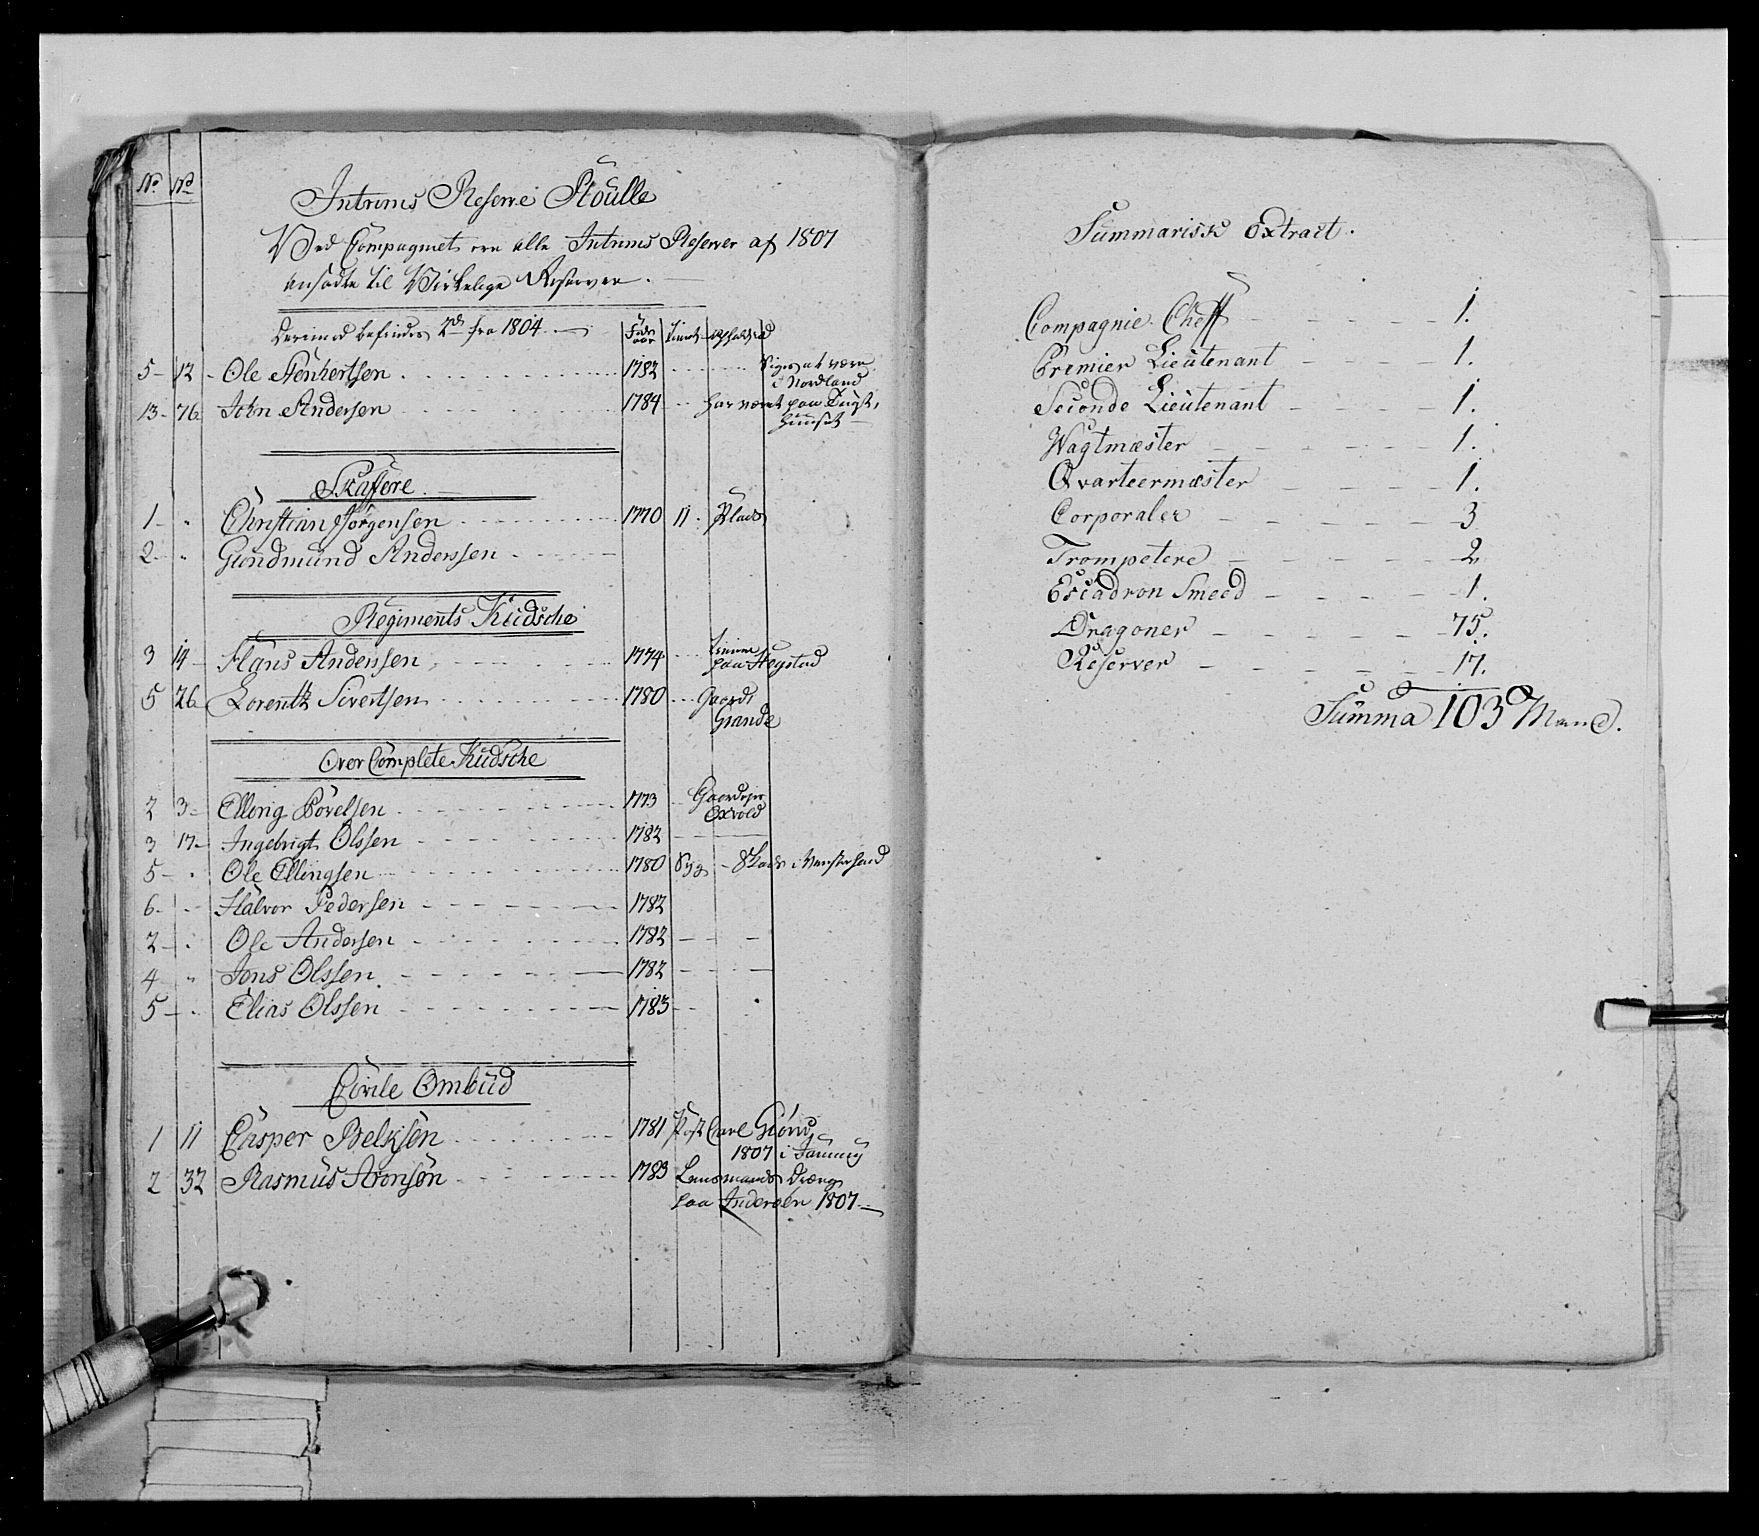 No No
Intrims Reserve Roulle
Ved Compagniet ere alle Intrims Reserver af 1807
ansadte til Virkelige Reserver.
Derimod befindes 2de fra 1804 Føde aar
5 12 Ole 1782 Siges at være
i Nordland
13 76 John Andersen 1784 har været paa
Skaffere
1 Christian Jørgensen 1770 11 Plads
2 Gundmund Anderssen
Regiments Kudsche
3 14 Hans Anderssen 1774 paa Hegstad
5 26 Lorentz Sivertsen 1780 Gaards
Grande
Over Complete Kudsche
2 3 Elling Povelsen 1773
Oxvold
3 17 Ingebrigt Olssen 1782
5 Ole Ellingsen 1780 Syg
6 Halvor Pedersen 1782
2 Ole Andersen 1782
4 Jens Olssen 1782
5 Elias Olssen 1783
Civile Ombud
1 11 Casper 1781
1807 i
2 32 Rasmus Aronsøn 1783 Lensmands Dreng
paa Inderøen 1807
Summarisk Extract.
Compagnie Cheff 1.
Premier Lieutenant 1.
Seconde Lieutenant 1.
Wagtmæster 1.
Qvarteermæster 1.
Corporaler 3
Trompetere 2
Escadron Smeed 1.
Dragoner 75.
Reserver 17.
Summa 103 Mand.